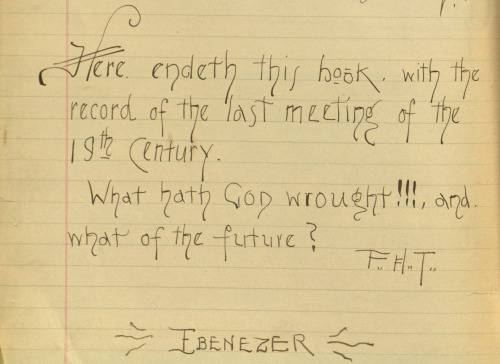 Here endeth this book. with the
record of the last meeting of the
19th Century.
What hath God wrought!!!, and
what of the future?
F.H.T.
EBENEZER